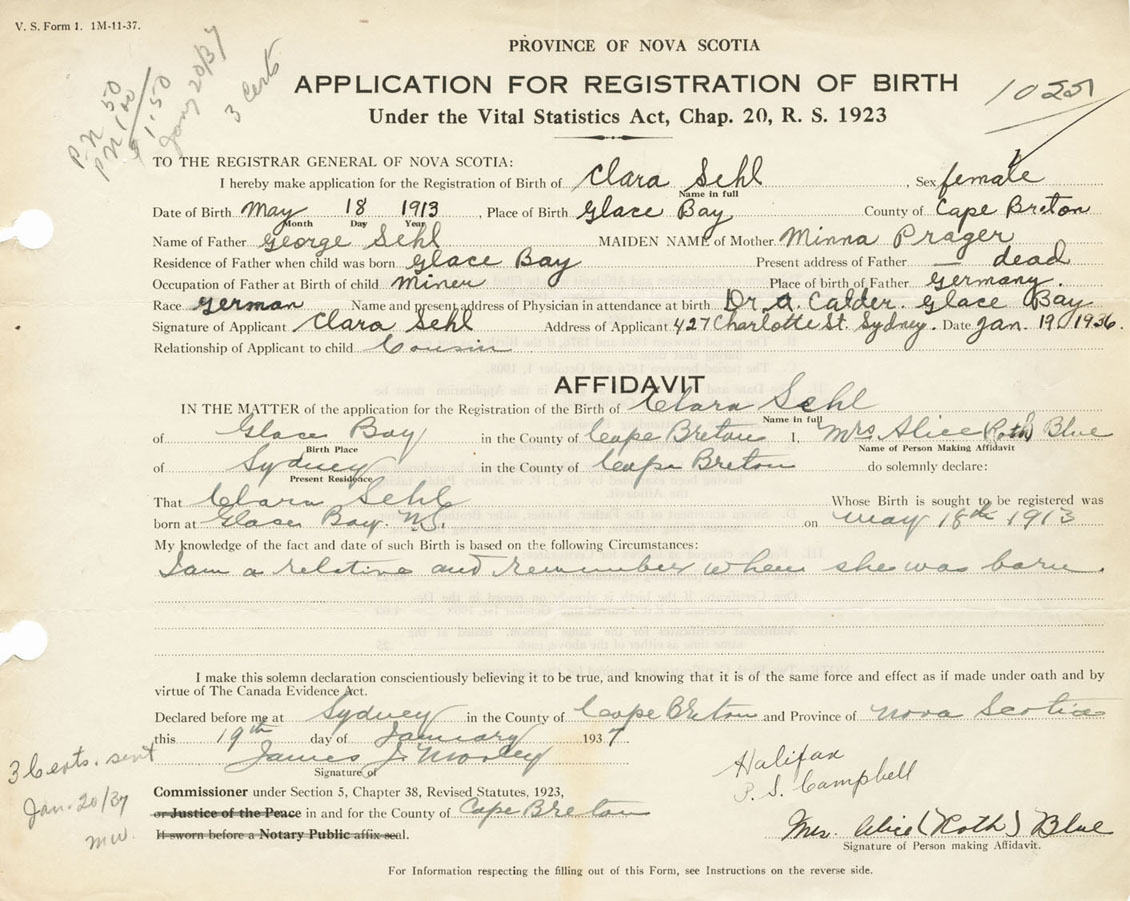 V. S. Form 1. 1M-11-37.
PN .50
PN 1.00
$1.50
Jany 20/37
3 Certs
PROVINCE OF NOVA SCOTIA
APPLICATION FOR REGISTRATION OF BIRTH
Under the Vital Statistics Act, Chap. 20, R. S. 1923
TO THE REGISTRAR GENERAL OF NOVA SCOTIA:
I hereby make application for the Registration of Birth of Clara Sehl, Sex female
Name in full
Date of Birth May 18 1913, Place of Birth Glace Bay County of Cape Breton
Month Day Year
Name of Father George Sehl MAIDEN NAME of Mother Minna Prager
Residence of Father when child was born Glace Bay Present address of Father — dead
Occupation of Father at Birth of child Miner Place of birth of Father Germany.
Race German Name and present address of Physician in attendance at birth Dr. A. Calder. Glace Bay
Signature of Applicant Clara Sehl Address of Applicant 427 Charlotte St. Sydney. Date Jan. 19 1936.
Relationship of Applicant to child Cousin
AFFIDAVIT
IN THE MATTER of the application for the Registration of the Birth of Clara Sehl
Name in full
of Glace Bay in the County of Cape Breton I, Mrs Alice (Roth) Blue
Birth Place Name of Person Making Affidavit
of Sydney in the County of Cape Breton do solemnly declare:
Present Residence
That Clara Sehl Whose Birth is sought to be registered was
born at Glace Bay. N.S. on May 18th 1913
My knowledge of the fact and date of such Birth is based on the following Circumstances:
I am a relative and remember when she was born.
I make this solemn declaration conscientiously believing it to be true, and knowing that it is of the same force and effect as if made under oath and by
virtue of The Canada Evidence Act.
Declared before me at Sydney in the County of Cape Breton and Province of Nova Scotia
this 19th day of January 1937
James J. Morley
Signature of
Commissioner under Section 5, Chapter 38, Revised Statutes, 1923,
or Justice of the Peace in and for the County of Cape Breton
If sworn before a Notary Public affix seal.
3 Certs. sent
Jan. 20/37
mw.
Halifax
P. S. Campbell
Mrs. Alice (Roth) Blue
Signature of Person making Affidavit.
For Information respecting the filling out of this Form, see Instructions on the reverse side.